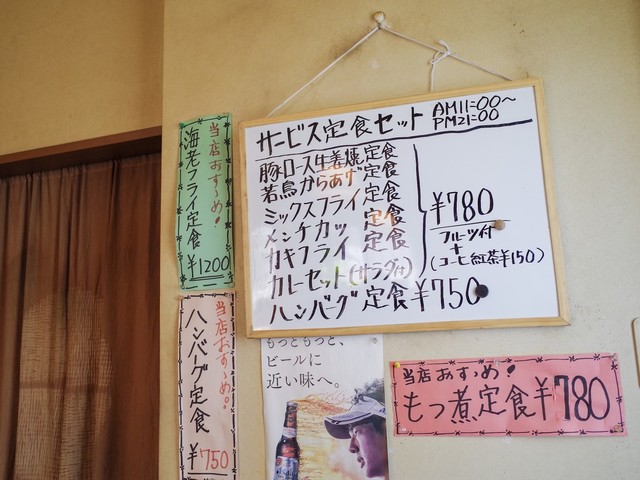 サービス定食セット AM11:00〜
PM21:00
豚ロース生姜焼定食
若鳥からあげ定食
ミックスフライ定食
メンチカツ定食
カキフライ定食
カレーセット(サラダ付)
¥780
フルーツ付
+
(コーヒ紅茶¥150)
ハンバーグ定食¥750
当店おすゝめ!
海老フライ定食
¥1200
当店おすゝめ。
ハンバーグ定食
¥750
もっともっと、
ビールに
近い味へ。
当店おすゝめ!
もつ煮定食¥780